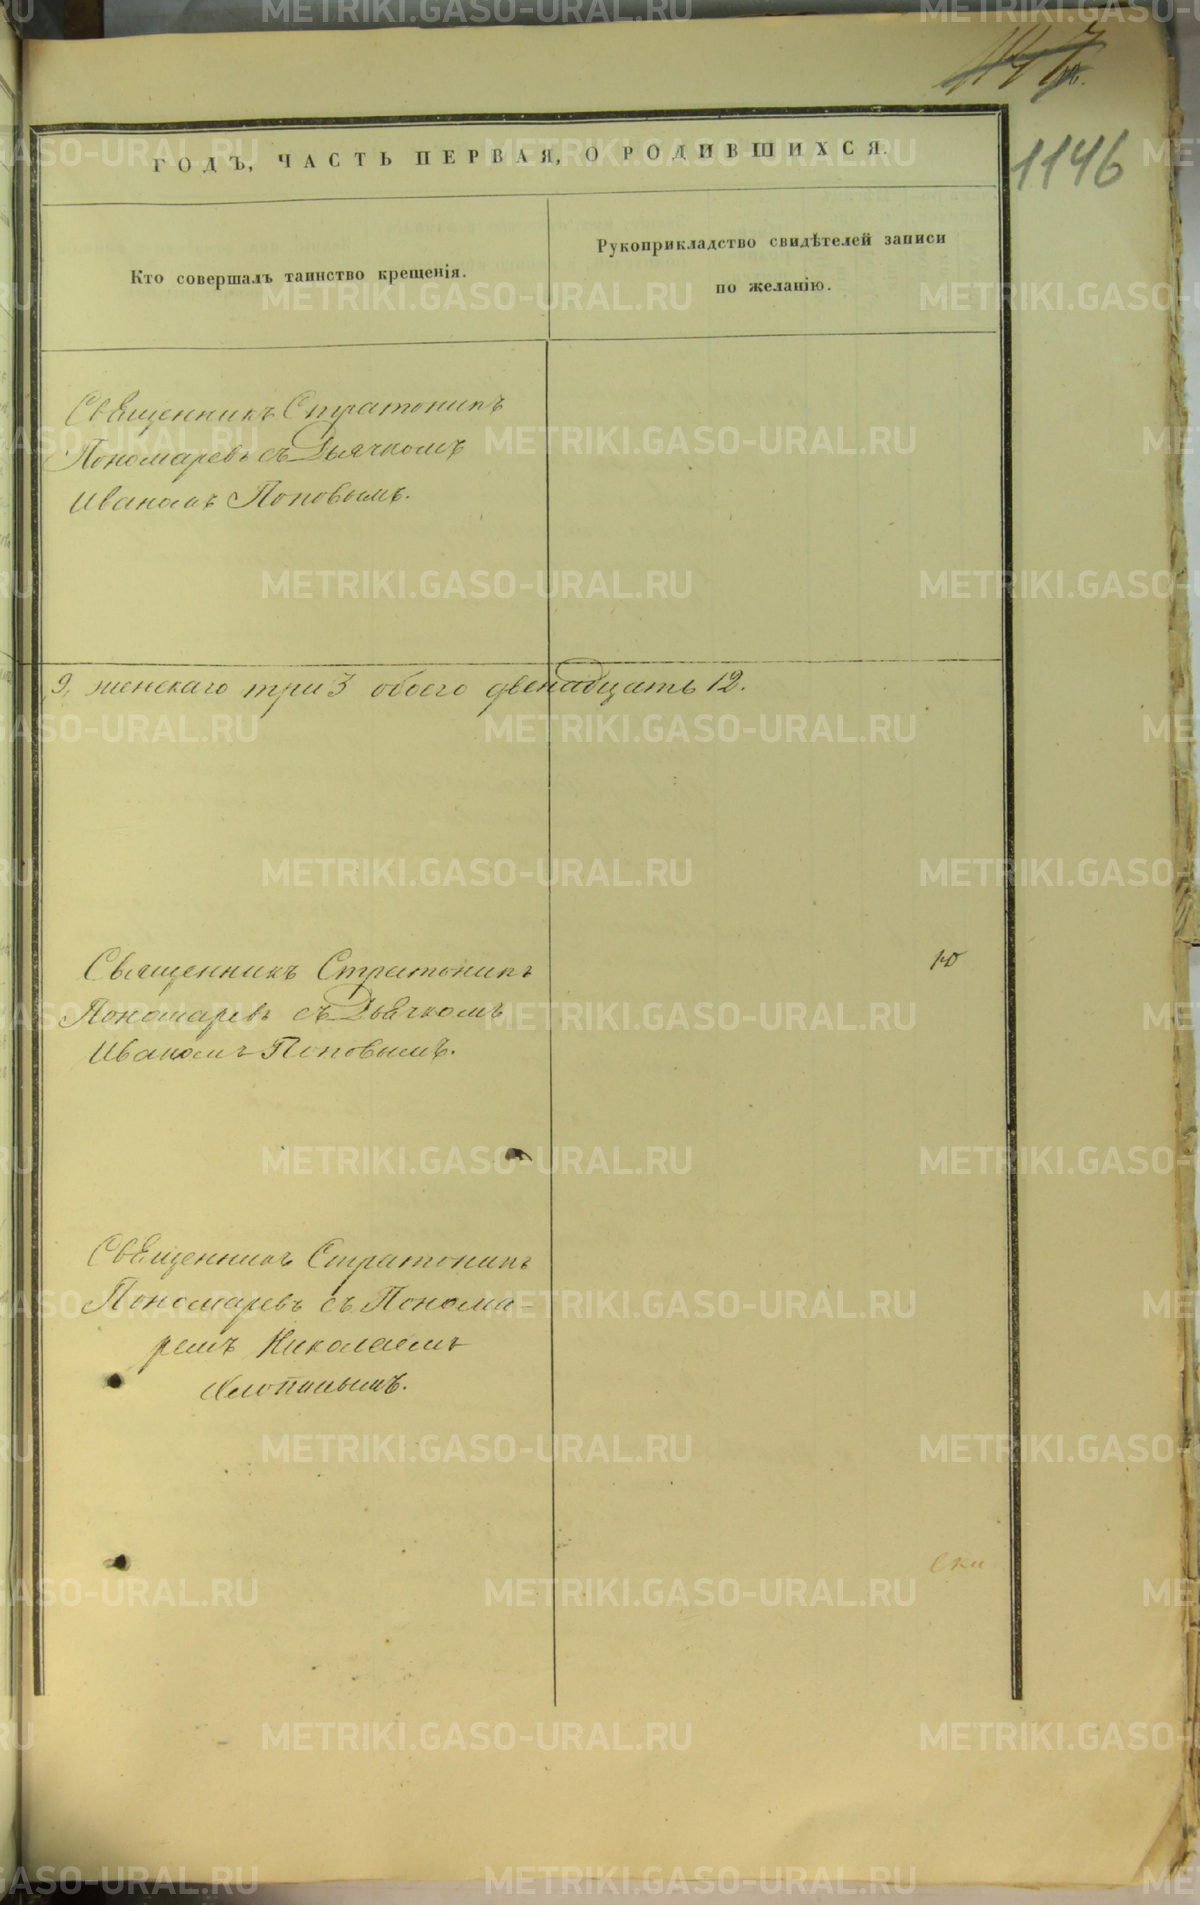 1146
ГОДЪ, ЧАСТЬ ПЕРВАЯ, О РОДИВШИХСЯ.
Кто совершалъ таинство крещенія.
Рукоприкладство свидѣтелей записи
по желанію.
Священникъ Стратоникъ
Пономаревъ съ Дьячкомъ
Иваномъ Поповымъ.
9, женскаго три 3 обоего двенадцать 12.
Священникъ Стратоникъ
Пономаревъ съ Дьячкомъ
Иваномъ Поповымъ.
ю
Священникъ Стратоникъ
Пономаревъ съ Понома-
ремъ Николаемъ
METRIKI.GASO-URAL.RU